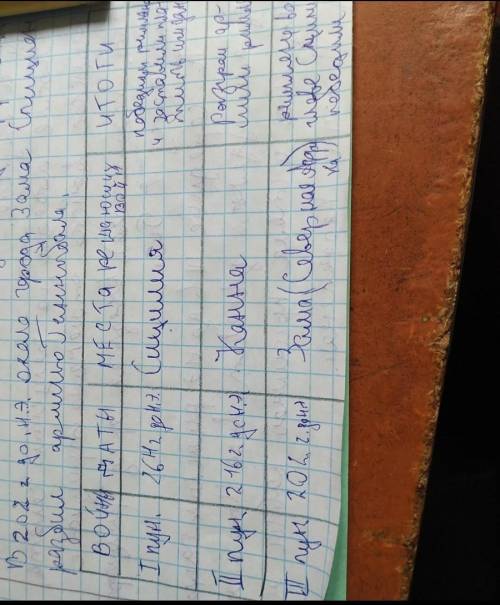 В 202 г. до н.э. около города Зама Сципион
разбил армию Ганнибала.
ВОЙНЫ ДАТЫ МЕСТА решающих ИТОГИ
войн
I пун. 264 г. до н.э. Сицилия победили римляне
и заставили
II пун 216 г. до н.э. Канны Разгром ар-
мии
III пун 202 г. до н.э Зама (Северная Афри
ка)
главе Сципи
победили